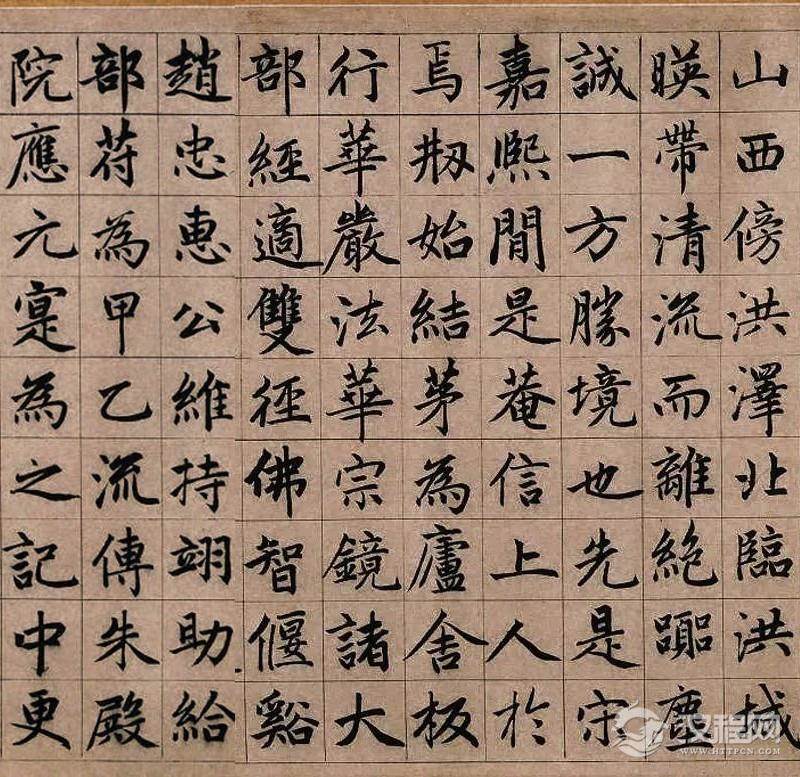 山西傍洪澤北臨洪城
暎帶清流而離絕囂塵
誠一方勝境也先是宋
嘉熙閒是菴信上人於
焉刱始結茅為廬舍板
行華嚴法華宗鏡諸大
部經適雙徑佛智偃谿
趙忠惠公維持翊助給
部苻為甲乙流傳朱殿
院應元寔為之記中更
汉程网
WWW.HTTPCN.COM